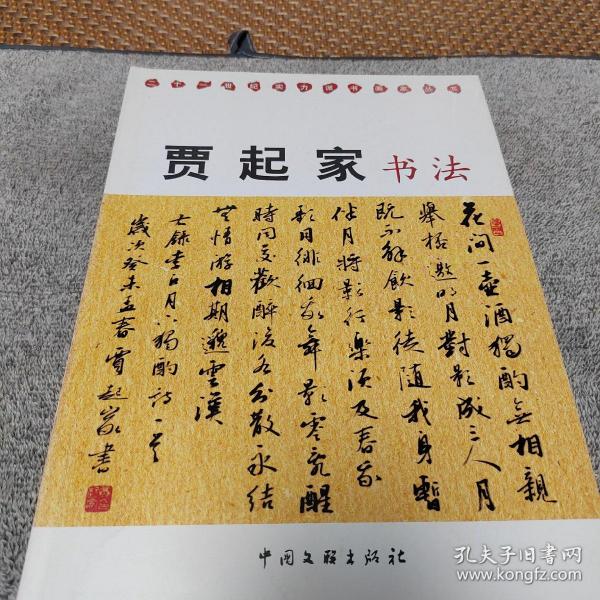 二十一世纪实力派书画家丛书
贾起家书法
花间一壶酒獨酌無相親
舉杯邀明月對影成三人月
既不解飲影徒隨我身暫
伴月將影行樂須及春我
歌月徘徊我舞影零亂醒
時同交歡醉後各分散永結
無情游相期邈雲漢
李白月下獨酌詩一首
歲次癸未孟春賈起家書
中国文联出版社
孔夫子旧书网
www.kongfz.com